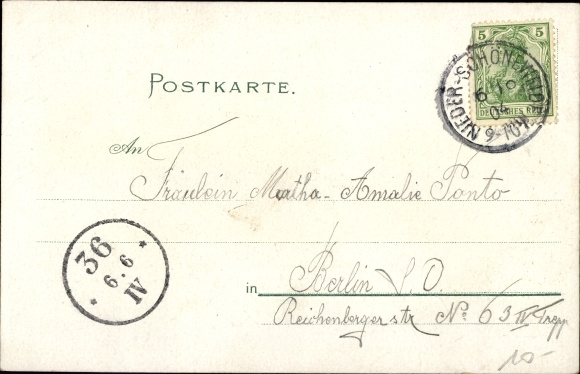 5 5
DEUTSCHES REICH
NIEDER-SCHÖNEWEIDE
04
9-10V.
POSTKARTE.
An
Fräulein Martha-Amalie Ponto
36
* 6.6 *
IV
in Berlin S. O.
Reichenberger str No 63 IV Trepp
10-